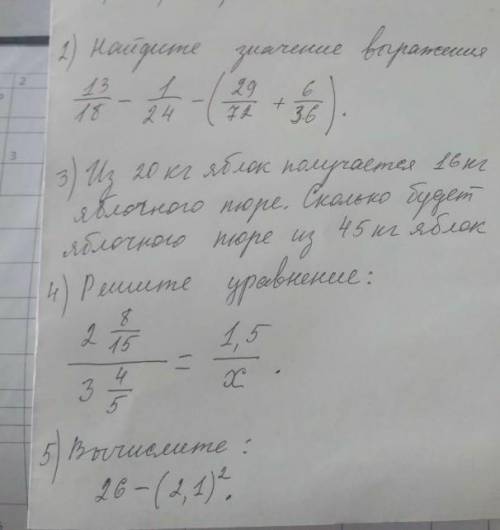 2) Найдите значение выражения
13/18 - 1/24 - (29/72 + 6/36).
3) Из 20 кг яблок получается 16 кг
яблочного пюре. Сколько будет
яблочного пюре из 45 кг яблок
4) Решите уравнение:
2 8/15 / 3 4/5 = 1,5/x.
5) Вычислите:
26 - (2,1)².
2
3